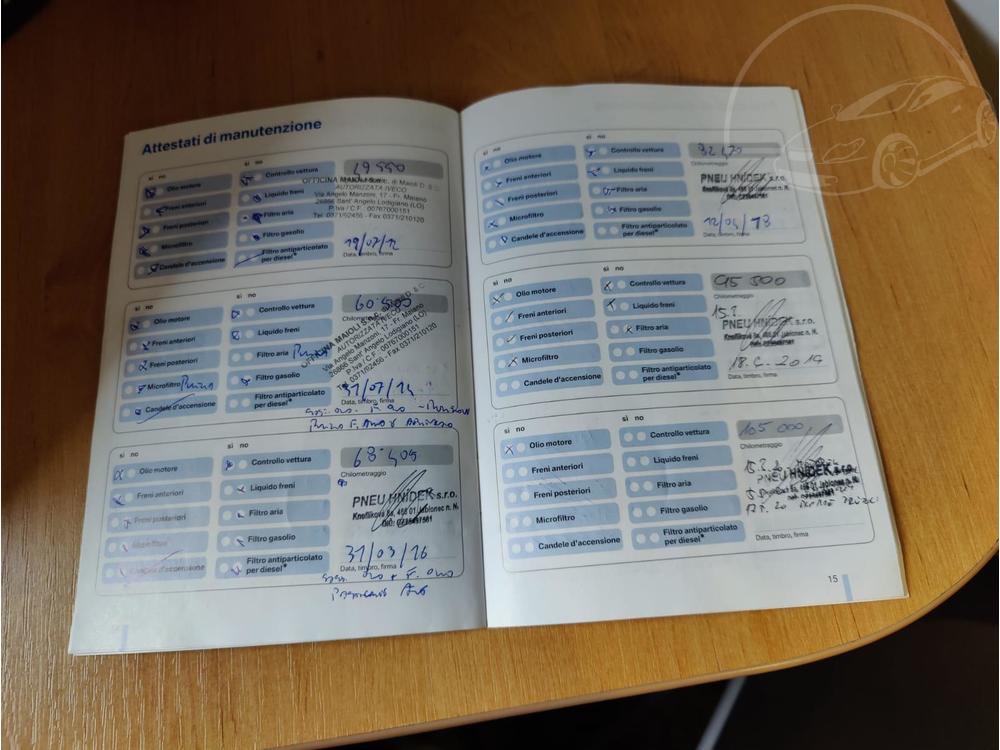 Attestati di manutenzione
sì no
sì no
Olio motore
Controllo vettura
Freni anteriori
Liquido freni
Freni posteriori
Filtro aria
Microfiltro
Filtro gasolio
Candele d'accensione
Filtro antiparticolato
per diesel*
OFFICINA MAIOLI S.n.c. di Maioli D. & C.
AUTORIZZATA IVECO
Via Angelo Manzoni, 17 - Fr. Maiano
26866 Sant' Angelo Lodigiano (LO)
P.Iva / C.F. 00767000151
Tel. 0371/62456 - Fax 0371/210120
Data, timbro, firma
sì no
sì no
Olio motore
Controllo vettura
Freni anteriori
Liquido freni
Freni posteriori
Filtro aria
Microfiltro
Filtro gasolio
Candele d'accensione
Filtro antiparticolato
per diesel*
60.505
Chilometraggio
OFFICINA MAIOLI
AUTORIZZATA IVECO
Via Angelo Manzoni, 17 - Fr. Maiano
26866 Sant' Angelo Lodigiano (LO)
P.Iva / C.F. 00767000151
Tel. 0371/62456 - Fax 0371/210120
31/07/14
Data, timbro, firma
sì no
sì no
Olio motore
Controllo vettura
Freni anteriori
Liquido freni
Freni posteriori
Filtro aria
Microfiltro
Filtro gasolio
Candele d'accensione
Filtro antiparticolato
per diesel*
68.409
Chilometraggio
PNEU HNÍDEK s.r.o.
Knoflíkova 8a, 466 01 Jablonec n. N.
31/03/16
Data, timbro, firma
sì no
sì no
Olio motore
Controllo vettura
Freni anteriori
Liquido freni
Freni posteriori
Filtro aria
Microfiltro
Filtro gasolio
Candele d'accensione
Filtro antiparticolato
per diesel*
Chilometraggio
PNEU HNÍDEK s.r.o.
Knoflíkova 8a, 466 01 Jablonec n. N.
Data, timbro, firma
sì no
sì no
Olio motore
Controllo vettura
Freni anteriori
Liquido freni
Freni posteriori
Filtro aria
Microfiltro
Filtro gasolio
Candele d'accensione
Filtro antiparticolato
per diesel*
95 500
Chilometraggio
PNEU HNÍDEK s.r.o.
Knoflíkova 8a, 466 01 Jablonec n. N.
Data, timbro, firma
sì no
sì no
Olio motore
Controllo vettura
Freni anteriori
Liquido freni
Freni posteriori
Filtro aria
Microfiltro
Filtro gasolio
Candele d'accensione
Filtro antiparticolato
per diesel*
105 000
Chilometraggio
PNEU HNÍDEK s.r.o.
Data, timbro, firma
15